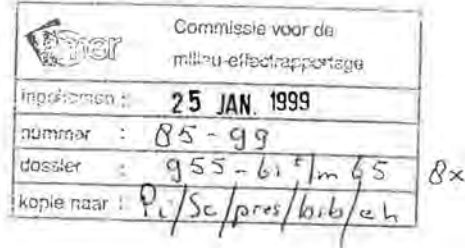 mer
Commissie voor de
milieu-effectrapportage
ingekomen : 25 JAN. 1999
nummer : 85-99
dossier : 955-61 t/m 65 8x
kopie naar : Pi/Sc/pres/bib/eh